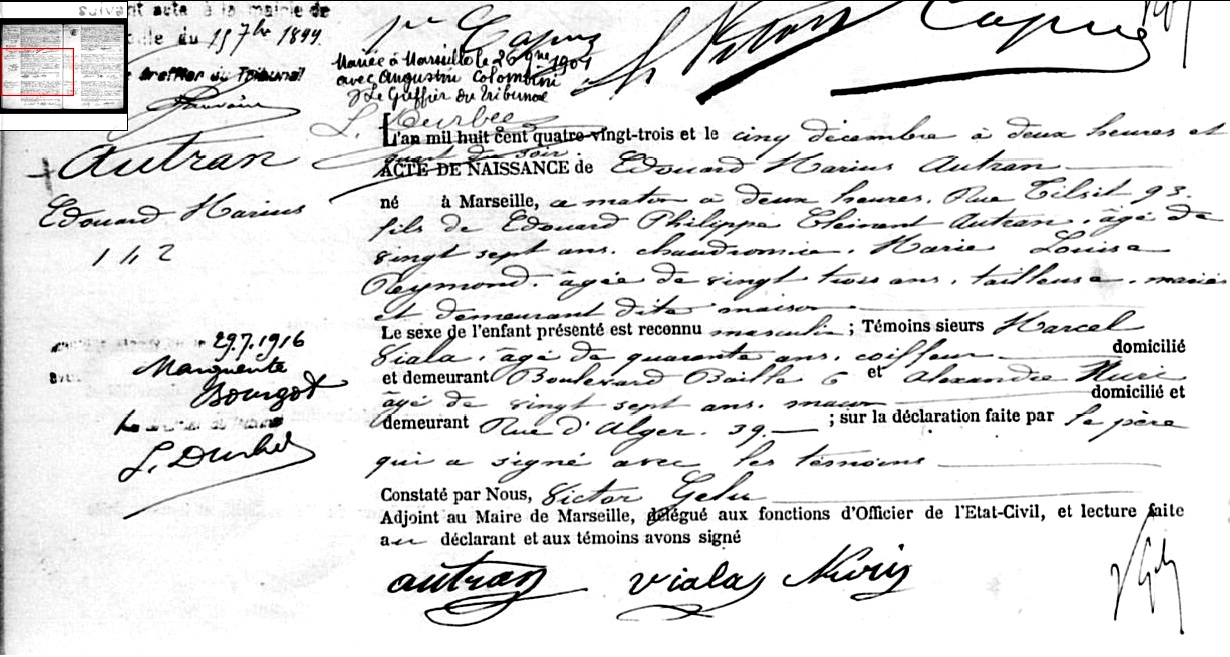 suivent acte à la mairie de
du 15 7bre 1899
Greffier du Tribunal
Mariée à Marseille le 26 9bre 1901
avec Augustin Colombini
Le Greffier du Tribunal
L. Durbec
L'an mil huit cent quatre-vingt-trois et le cinq décembre à deux heures et
quart du soir.
Autran
Edouard Marius
112
ACTE DE NAISSANCE de Edouard Marius Autran
né à Marseille, ce matin à deux heures, Rue Tilsit 93.
fils de Edouard Philippe Clément Autran, âgé de
vingt sept ans, chaudronnier, Marie Louise
Reymond, âgée de vingt trois ans, tailleuse, mariés
et demeurant dite maison
Le sexe de l'enfant présenté est reconnu masculin ; Témoins sieurs Marcel
Viala, âgé de quarante ans, coiffeur domicilié
et demeurant Boulevard Baille 6 et Alexandre
âgé de vingt sept ans, maçon domicilié et
demeurant Rue d'Alger, 39 ; sur la déclaration faite par le père
qui a signé avec les témoins
Constaté par Nous, Victor Gelu
Adjoint au Maire de Marseille, délégué aux fonctions d'Officier de l'Etat-Civil, et lecture faite
au déclarant et aux témoins avons signé
29.7.1916
Marguerite
Bourgot
L. Durbec
Autran Viala
V Gelu